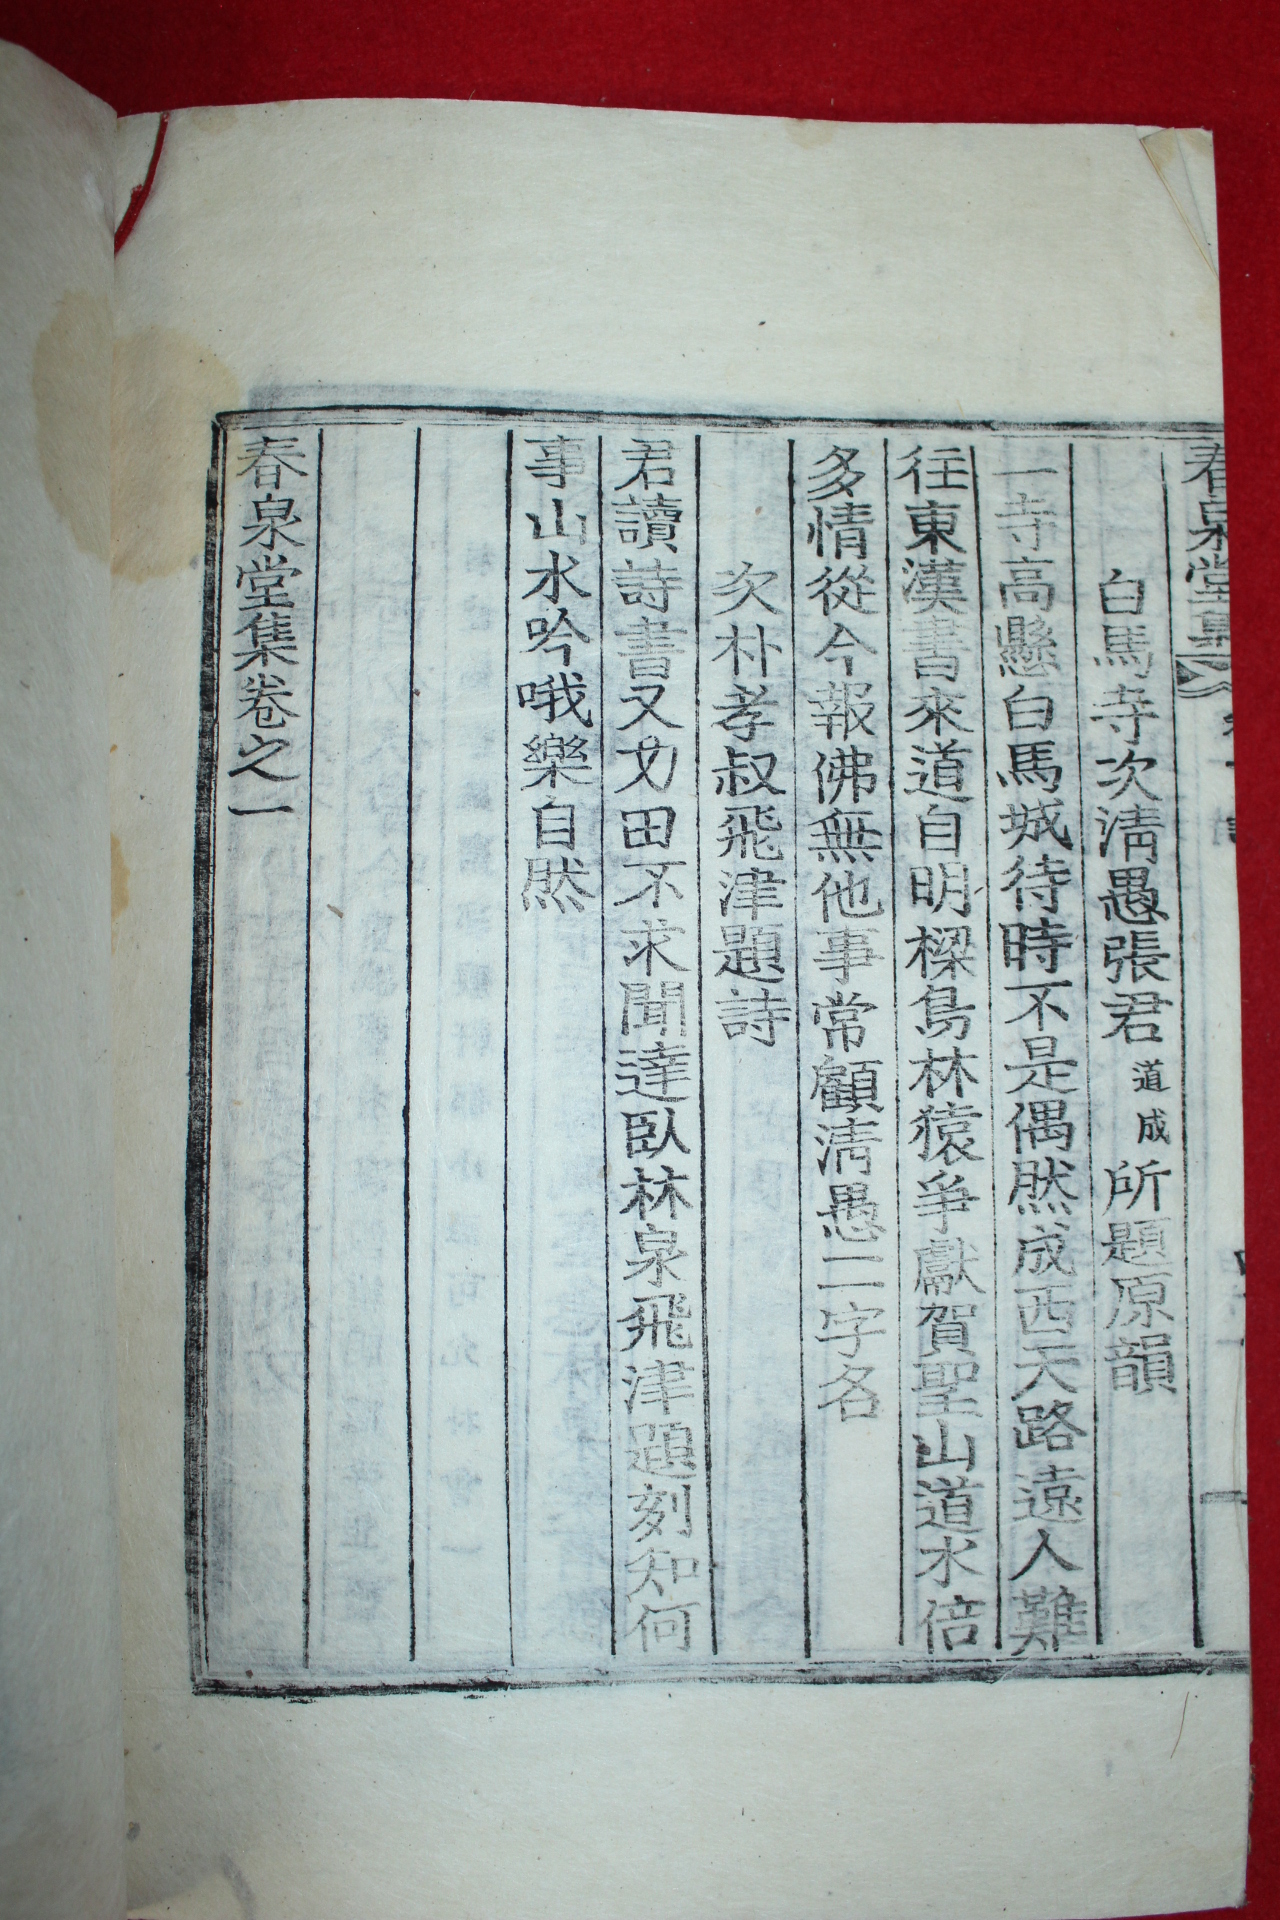 春泉堂集
白馬寺次淸愚張君道成所題原韻
一寺高懸白馬城待時不是偶然成西天路遠人難
往東漢書來道自明樑鳥林猿爭獻賀聖山道水倍
多情從今報佛無他事常顧淸愚二字名
次朴孝叔飛津題詩
君讀詩書又力田不求聞達臥林泉飛津題刻知何
事山水吟哦樂自然
春泉堂集卷之一